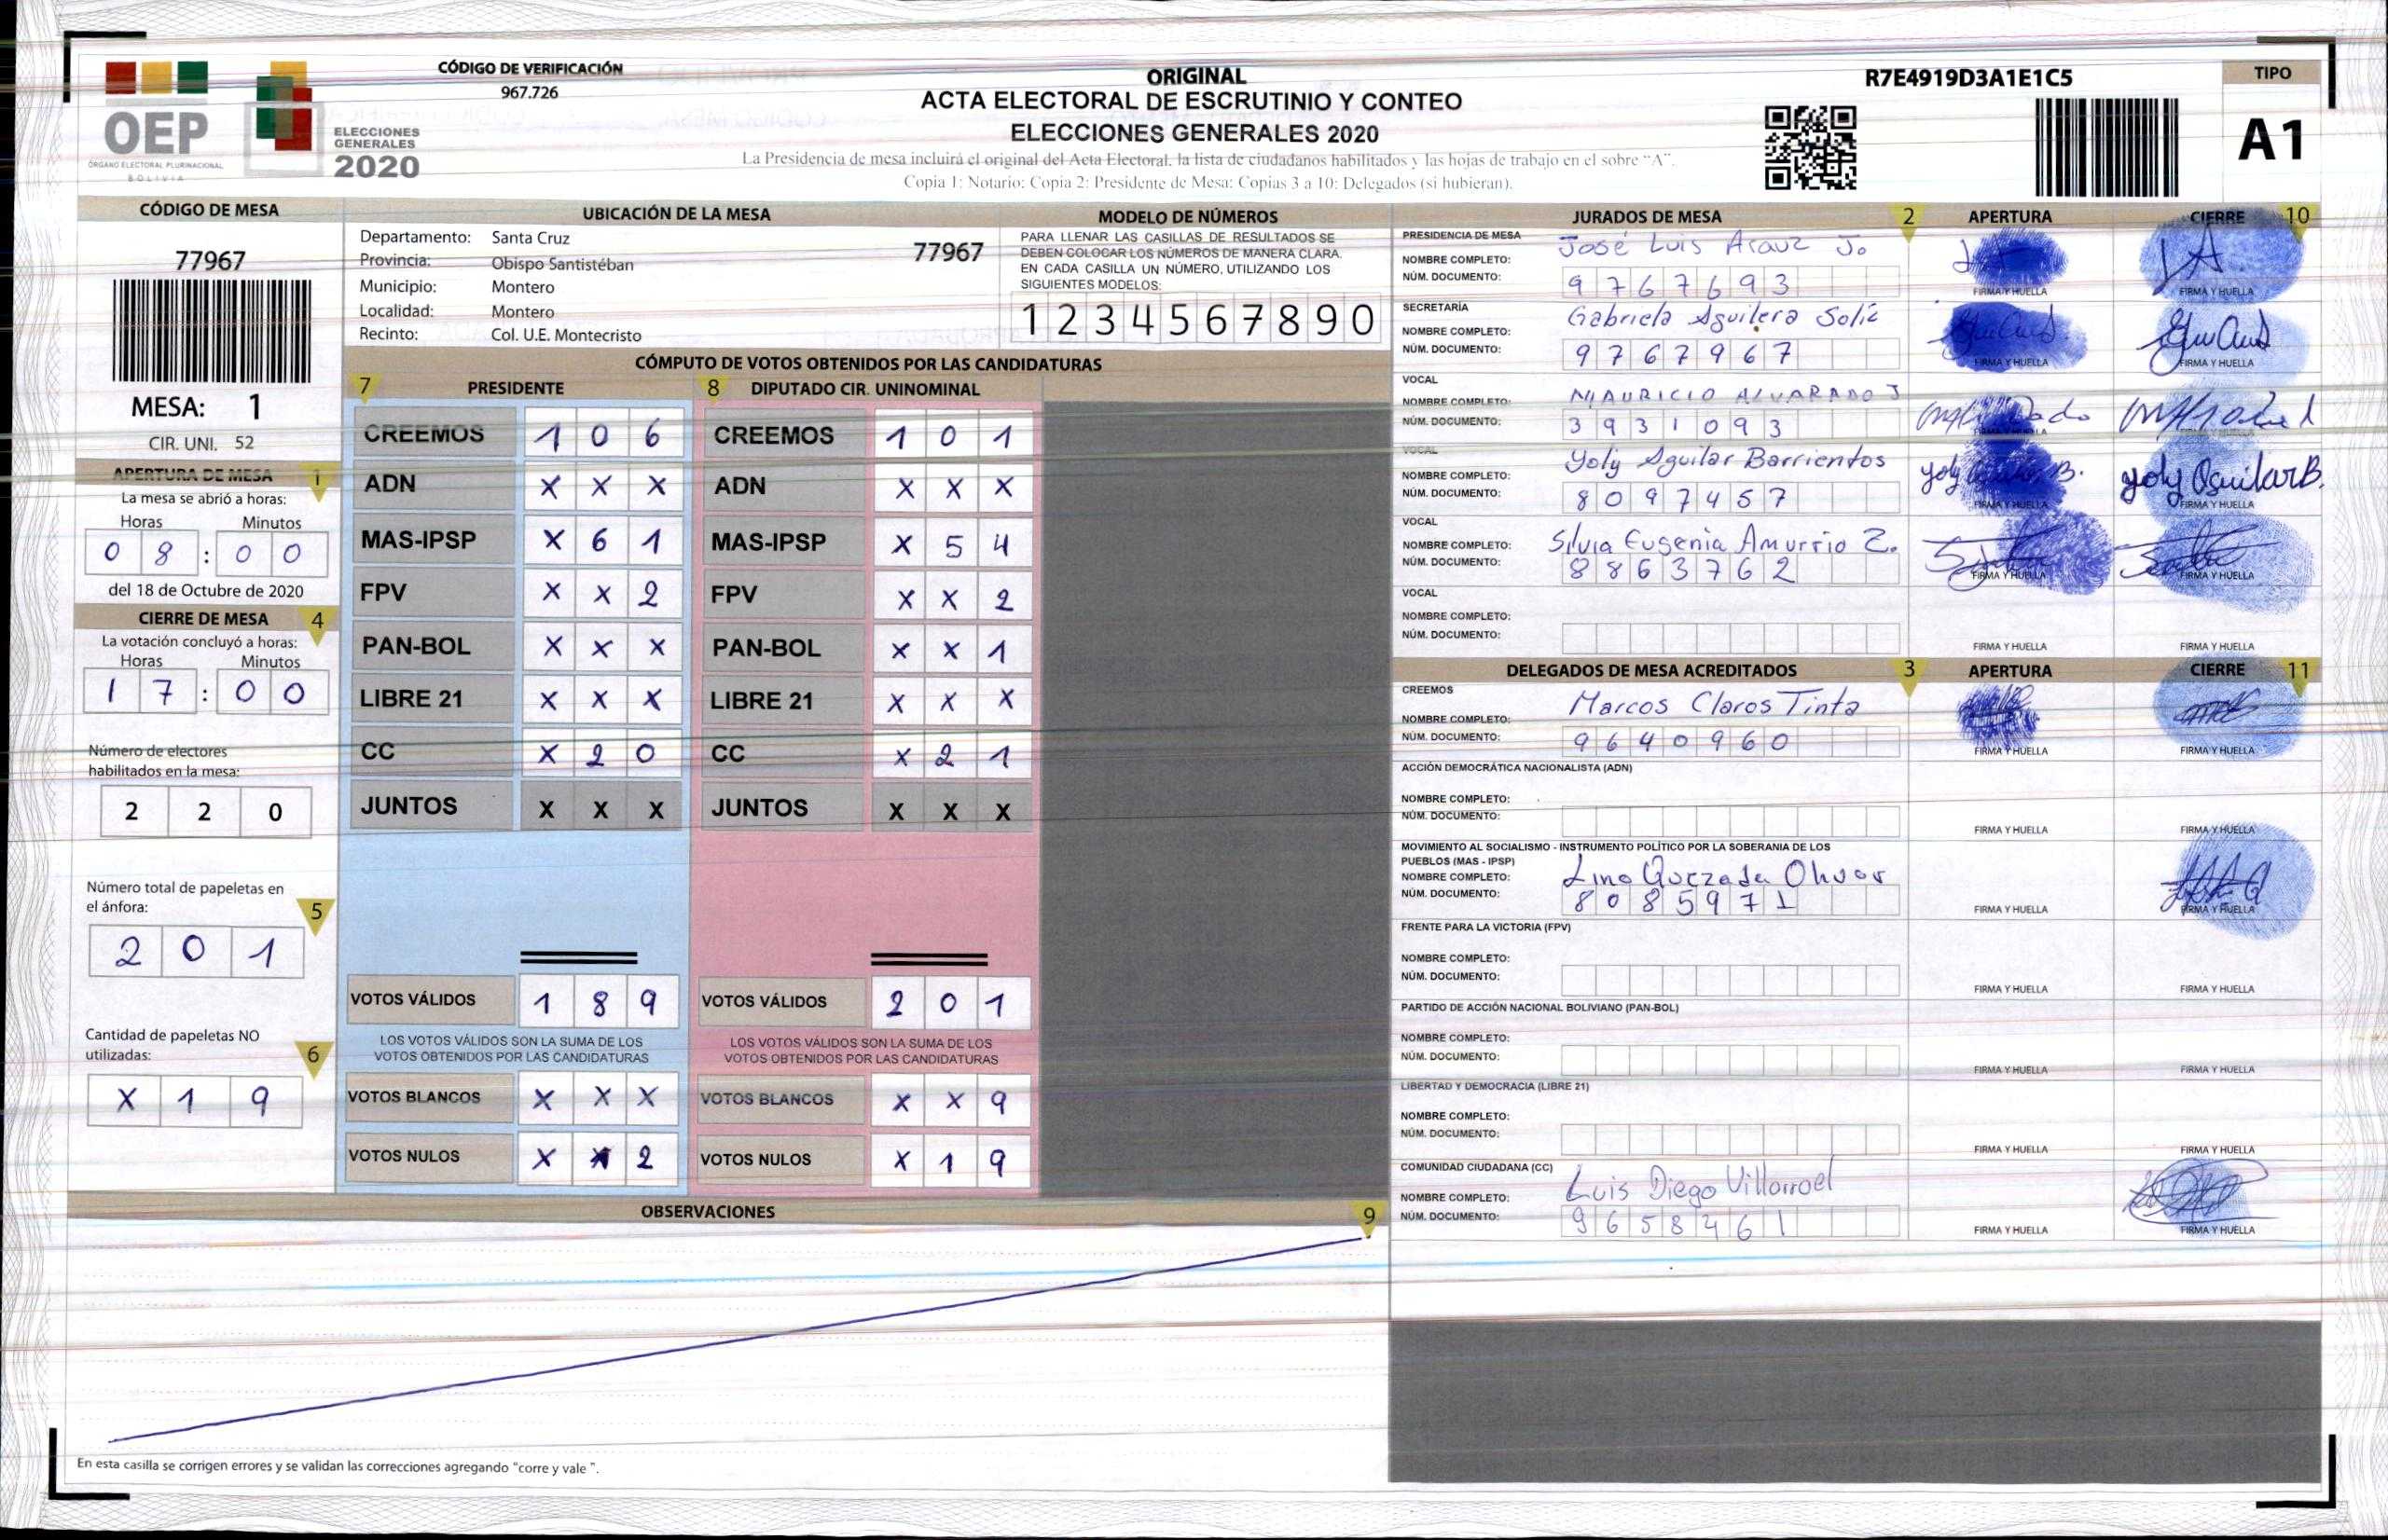 CÓDIGO DE VERIFICACIÓN
967.726
OEP
ÓRGANO ELECTORAL PLURINACIONAL
BOLIVIA
ELECCIONES
GENERALES
2020
ORIGINAL
ACTA ELECTORAL DE ESCRUTINIO Y CONTEO
ELECCIONES GENERALES 2020
La Presidencia de mesa incluirá el original del Acta Electoral, la lista de ciudadanos habilitados y las hojas de trabajo en el sobre "A".
Copia 1: Notario: Copia 2: Presidente de Mesa: Copias 3 a 10: Delegados (si hubieran).
R7E4919D3A1E1C5
TIPO
A1
CÓDIGO DE MESA
77967
MESA: 1
CIR. UNI. 52
APERTURA DE MESA 1
La mesa se abrió a horas:
Horas Minutos
0 8 : 0 0
del 18 de Octubre de 2020
CIERRE DE MESA 4
La votación concluyó a horas:
Horas Minutos
1 7 : 0 0
Número de electores
habilitados en la mesa:
2 2 0
Número total de papeletas en
el ánfora: 5
2 0 1
Cantidad de papeletas NO
utilizadas: 6
X 1 9
UBICACIÓN DE LA MESA
Departamento: Santa Cruz 77967
Provincia: Obispo Santistéban
Municipio: Montero
Localidad: Montero
Recinto: Col. U.E. Montecristo
MODELO DE NÚMEROS
PARA LLENAR LAS CASILLAS DE RESULTADOS SE
DEBEN COLOCAR LOS NÚMEROS DE MANERA CLARA.
EN CADA CASILLA UN NÚMERO, UTILIZANDO LOS
SIGUIENTES MODELOS:
1 2 3 4 5 6 7 8 9 0
CÓMPUTO DE VOTOS OBTENIDOS POR LAS CANDIDATURAS
7 PRESIDENTE 8 DIPUTADO CIR. UNINOMINAL
CREEMOS 1 0 6 CREEMOS 1 0 1
ADN X X X ADN X X X
MAS-IPSP X 6 1 MAS-IPSP X 5 4
FPV X X 2 FPV X X 2
PAN-BOL X X X PAN-BOL X X 1
LIBRE 21 X X X LIBRE 21 X X X
CC X 2 0 CC X 2 1
JUNTOS X X X JUNTOS X X X
VOTOS VÁLIDOS 1 8 9 VOTOS VÁLIDOS 2 0 1
LOS VOTOS VÁLIDOS SON LA SUMA DE LOS LOS VOTOS VÁLIDOS SON LA SUMA DE LOS
VOTOS OBTENIDOS POR LAS CANDIDATURAS VOTOS OBTENIDOS POR LAS CANDIDATURAS
VOTOS BLANCOS X X X VOTOS BLANCOS X X 9
VOTOS NULOS X X 2 VOTOS NULOS X 1 9
OBSERVACIONES 9
En esta casilla se corrigen errores y se validan las correcciones agregando "corre y vale ".
JURADOS DE MESA 2 APERTURA CIERRE 10
PRESIDENCIA DE MESA
NOMBRE COMPLETO: José Luis Arauz Jo
NÚM. DOCUMENTO: 9 7 6 7 6 9 3
FIRMA Y HUELLA FIRMA Y HUELLA
SECRETARÍA
NOMBRE COMPLETO: Gabriela Aguilera Solíz
NÚM. DOCUMENTO: 9 7 6 7 9 6 7
FIRMA Y HUELLA FIRMA Y HUELLA
VOCAL
NOMBRE COMPLETO: MAURICIO ALVARADO J
NÚM. DOCUMENTO: 3 9 3 1 0 9 3
VOCAL
NOMBRE COMPLETO: Yoly Aguilar Barrientos
NÚM. DOCUMENTO: 8 0 9 7 4 5 7
yoly Aguilar B.
FIRMA Y HUELLA FIRMA Y HUELLA
VOCAL
NOMBRE COMPLETO: Silvia Eugenia Amurrio Z.
NÚM. DOCUMENTO: 8 8 6 3 7 6 2
FIRMA Y HUELLA FIRMA Y HUELLA
VOCAL
NOMBRE COMPLETO:
NÚM. DOCUMENTO:
FIRMA Y HUELLA FIRMA Y HUELLA
DELEGADOS DE MESA ACREDITADOS 3 APERTURA CIERRE 11
CREEMOS
NOMBRE COMPLETO: Marcos Claros Tinta
NÚM. DOCUMENTO: 9 6 4 0 9 6 0
FIRMA Y HUELLA FIRMA Y HUELLA
ACCIÓN DEMOCRÁTICA NACIONALISTA (ADN)
NOMBRE COMPLETO:
NÚM. DOCUMENTO:
FIRMA Y HUELLA FIRMA Y HUELLA
MOVIMIENTO AL SOCIALISMO - INSTRUMENTO POLÍTICO POR LA SOBERANIA DE LOS
PUEBLOS (MAS - IPSP)
NOMBRE COMPLETO: Lino Quezada
NÚM. DOCUMENTO: 8 0 8 5 9 7 1
FIRMA Y HUELLA FIRMA Y HUELLA
FRENTE PARA LA VICTORIA (FPV)
NOMBRE COMPLETO:
NÚM. DOCUMENTO:
FIRMA Y HUELLA FIRMA Y HUELLA
PARTIDO DE ACCIÓN NACIONAL BOLIVIANO (PAN-BOL)
NOMBRE COMPLETO:
NÚM. DOCUMENTO:
FIRMA Y HUELLA FIRMA Y HUELLA
LIBERTAD Y DEMOCRACIA (LIBRE 21)
NOMBRE COMPLETO:
NÚM. DOCUMENTO:
FIRMA Y HUELLA FIRMA Y HUELLA
COMUNIDAD CIUDADANA (CC)
NOMBRE COMPLETO: Luis Diego Villarroel
NÚM. DOCUMENTO: 9 6 5 8 4 6 1
FIRMA Y HUELLA FIRMA Y HUELLA